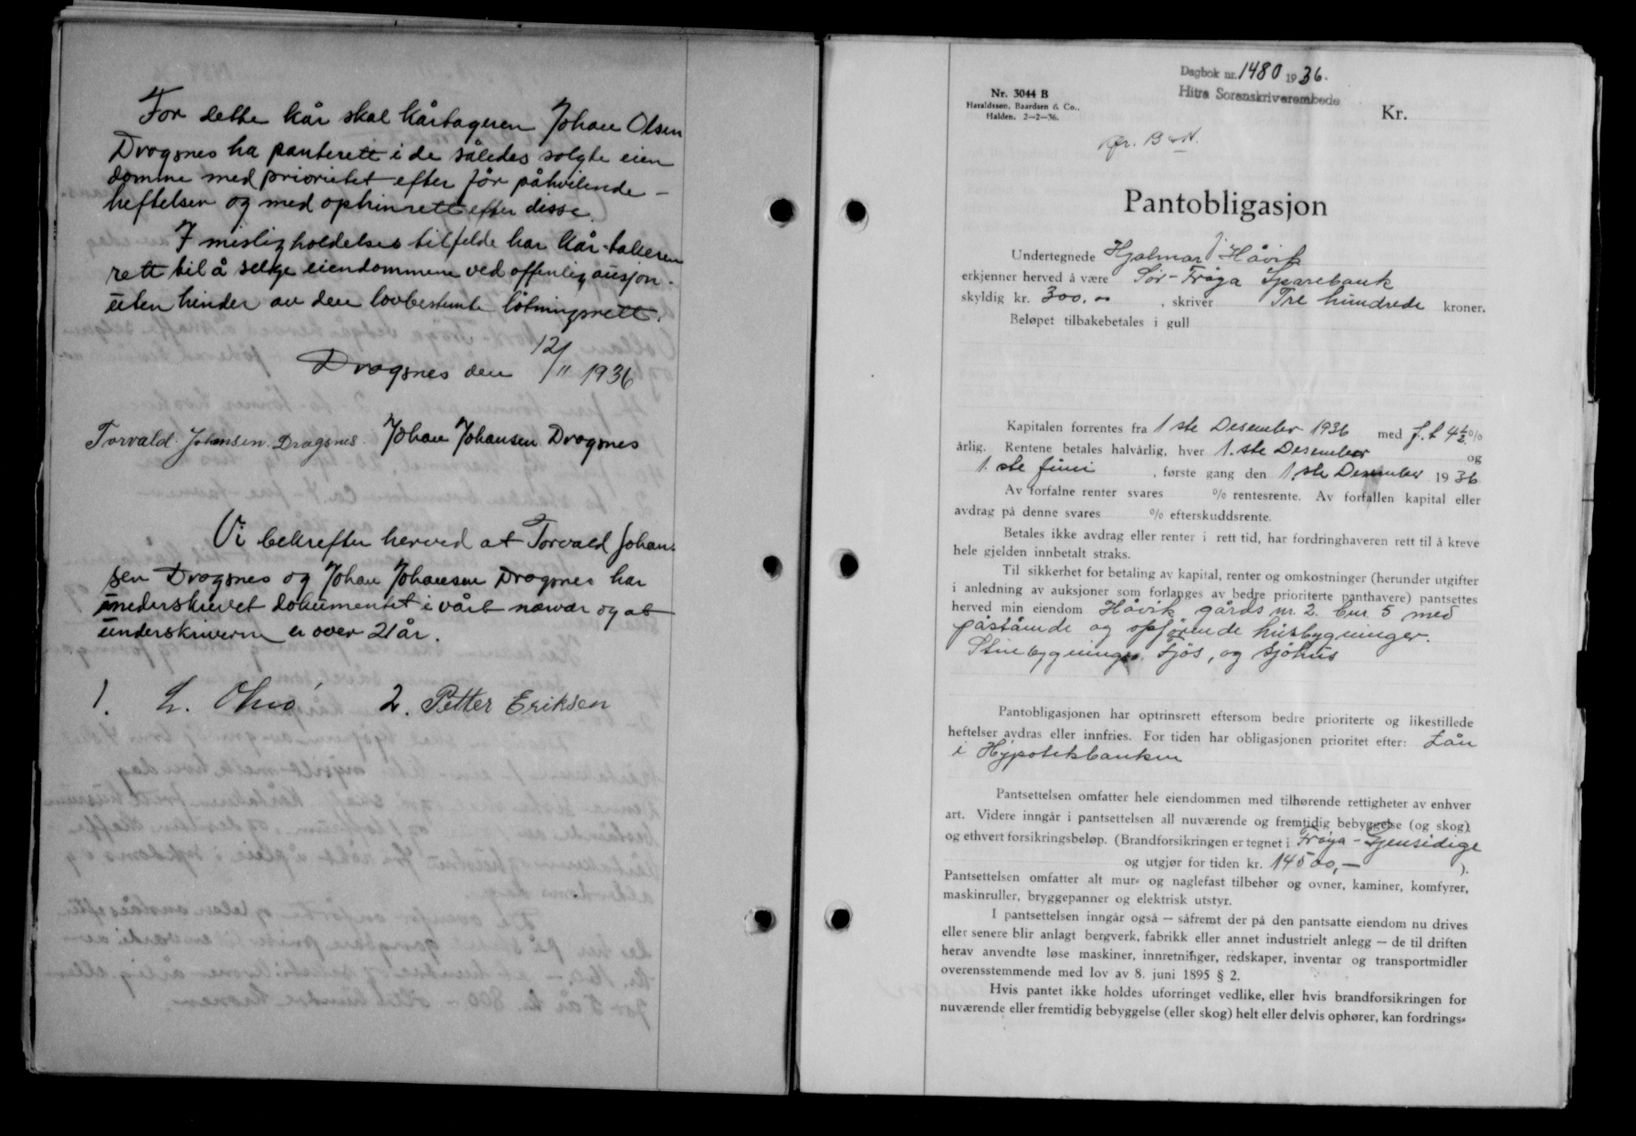 For dette kår skal kårtageren Johan Olsen
Dragsnes ha panterett i de således solgte eien
domme med prioritet efter før påhvilende
heftelser og med optrinrett efter disse.
I misligholdelses tilfelde har kår-takeren
rett til å selge eiendommene ved offenlig ausjon
uten hinder av den lovbestemte løsningsrett.
Dragsnes den 12/11 1936
Torvald Johansen Dragsnes. Johan Johansen Dragsnes
Vi bekrefter herved at Torvald Johan-
sen Dragsnes og Johan Johansen Dragsnes har
underskrevet dokumentet i vårt nærvær og at
underskriverne er over 21 år.
1. 2. Petter Eriksen
Dagbok nr. 1480 1936.
Hitra Sorenskriverembede
Nr. 3044 B
Haraldssen, Baardsen & Co.,
Halden. 2—2—36.
Kr.
Pantobligasjon
Undertegnede Hjalmar J Håvik
erkjenner herved å være Sør-Frøya Sparebank
skyldig kr. 300.00 , skriver Tre hundrede kroner.
Beløpet tilbakebetales i gull
Kapitalen forrentes fra 1ste Desember 1936 med f.t 4½ %
årlig. Rentene betales halvårlig, hver 1.ste Desember og
1.ste juni , første gang den 1.ste Desember 1936
Av forfalne renter svares % rentesrente. Av forfallen kapital eller
avdrag på denne svares % efterskuddsrente.
Betales ikke avdrag eller renter i rett tid, har fordringhaveren rett til å kreve
hele gjelden innbetalt straks.
Til sikkerhet for betaling av kapital, renter og omkostninger (herunder utgifter
i anledning av auksjoner som forlanges av bedre prioriterte panthavere) pantsettes
herved min eiendom Håvik gårds nr. 2. bnr. 5 med
påstående og opførende husbygninger.
Stuebygninger, Fjøs, og sjøhus
Pantobligasjonen har optrinsrett eftersom bedre prioriterte og likestillede
heftelser avdras eller innfries. For tiden har obligasjonen prioritet efter: Lån
i Hypotekbanken
Pantsettelsen omfatter hele eiendommen med tilhørende rettigheter av enhver
art. Videre inngår i pantsettelsen all nuværende og fremtidig bebyggelse (og skog)
og ethvert forsikringsbeløp. (Brandforsikringen er tegnet i Frøya-Gjensidige
og utgjør for tiden kr. 14500,— ).
Pantsettelsen omfatter alt mur- og naglefast tilbehør og ovner, kaminer, komfyrer,
maskinruller, bryggepanner og elektrisk utstyr.
I pantsettelsen inngår også — såfremt der på den pantsatte eiendom nu drives
eller senere blir anlagt bergverk, fabrikk eller annet industrielt anlegg — de til driften
herav anvendte løse maskiner, innretninger, redskaper, inventar og transportmidler
overensstemmende med lov av 8. juni 1895 § 2.
Hvis pantet ikke holdes uforringet vedlike, eller hvis brandforsikringen for
nuværende eller fremtidig bebyggelse (eller skog) helt eller delvis ophører, kan fordrings-